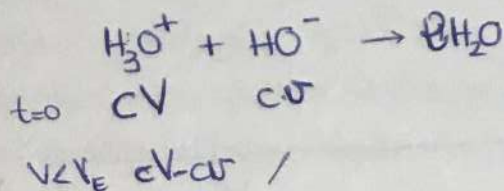 H₃O⁺ + HO⁻ → 2H₂O
t=0 CV C.V
V<V_E CV-CV /